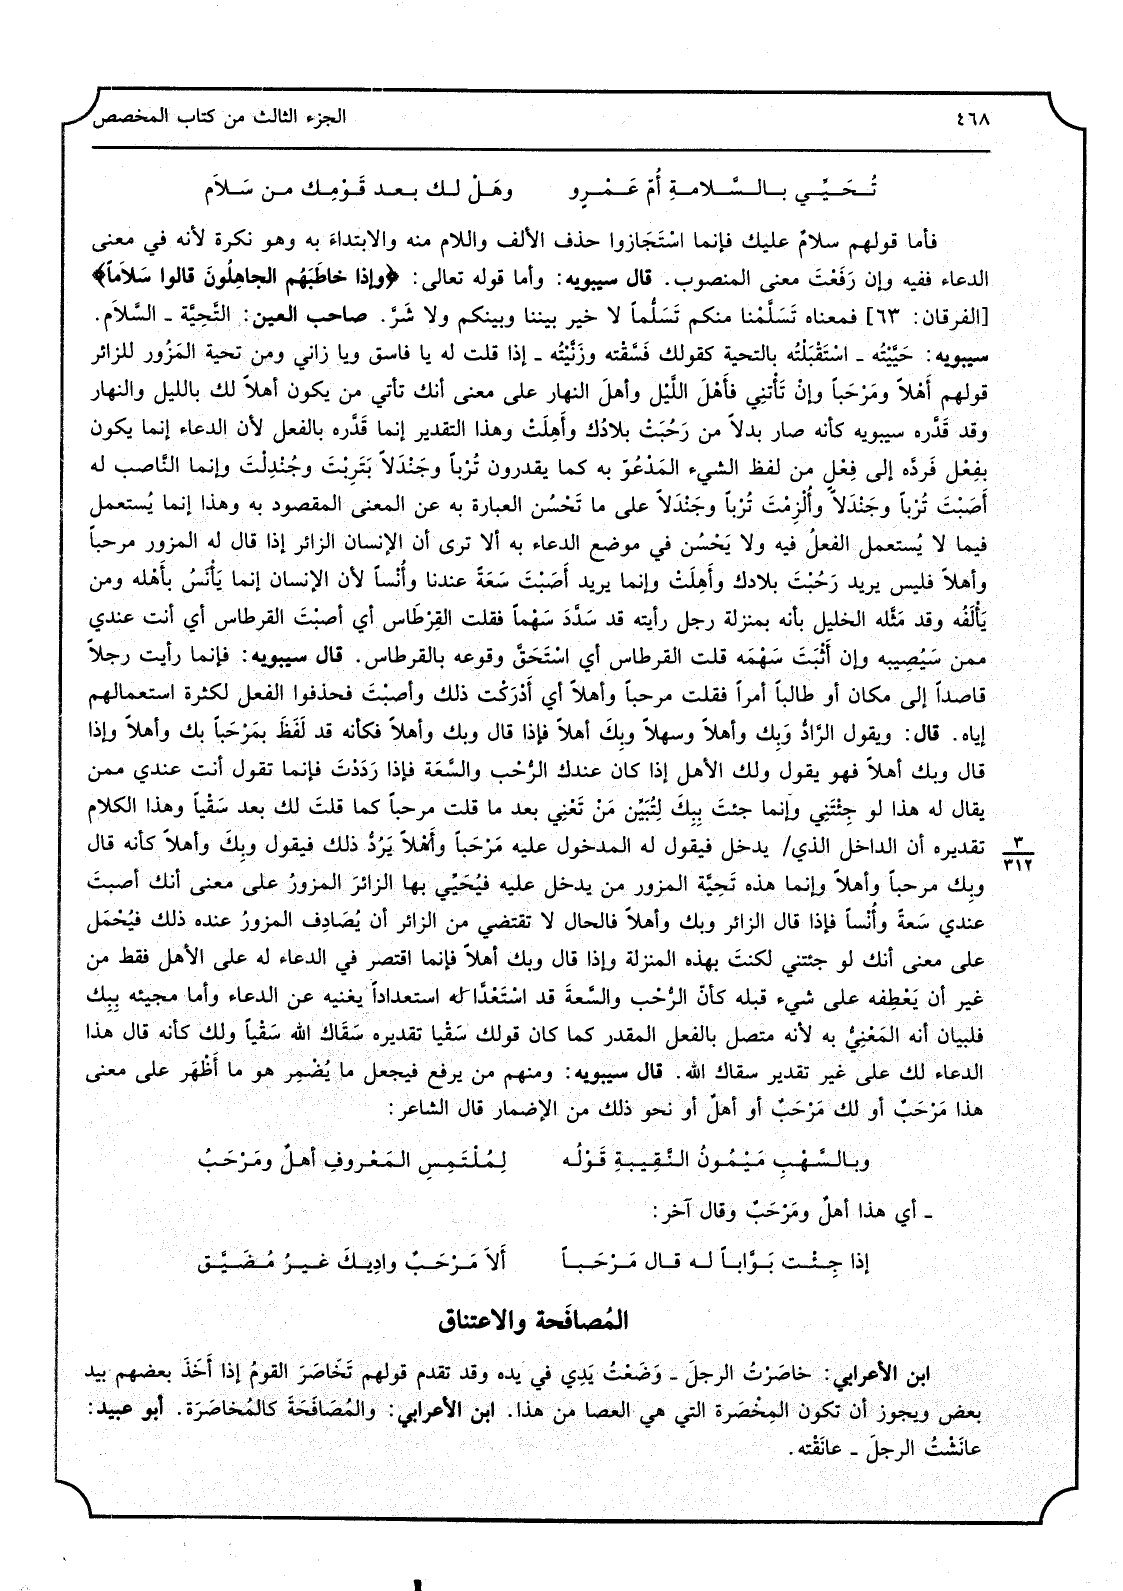 ٤٦٨ الجزء الثالث من كتاب المخصص
تُـحَـيِّـي بـالـسَّـلامـةِ أُمّ عَـمْـرٍو وهَلْ لـك بـعـد قَـوْمِـك مـن سَـلاَم
فأما قولهم سلامٌ عليك فإنما اسْتَجازوا حذف الألف واللام منه والابتداءَ به وهو نكرة لأنه في معنى
الدعاء ففيه وإن رَفَعْتَ معنى المنصوب. قال سيبويه: وأما قوله تعالى: ﴿وإذا خاطَبَهُم الجاهِلُونَ قالوا سَلاَماً﴾
[الفرقان: ٦٣] فمعناه تَسَلَّمْنا منكم تَسَلُّماً لا خير بيننا وبينكم ولا شَرَّ. صاحب العين: التَّحِيَّة ـ السَّلاَم.
سيبويه: حَيَّيْتُه ـ اسْتَقْبَلْتُه بالتحية كقولك فَسَّقْته وزَنَّيْتُه ـ إذا قلت له يا فاسق ويا زاني ومن تحية المَزُور للزائر
قولهم أَهْلاً ومَرْحَباً وإنْ تَأْتنِي فأَهْلَ اللَّيْل وأهلَ النهار على معنى أنك تأتي من يكون أهلاً لك بالليل والنهار
وقد قَدَّره سيبويه كأنه صار بدلاً من رَحُبَتْ بلادُك وأَهِلَتْ وهذا التقدير إنما قَدَّره بالفعل لأن الدعاء إنما يكون
بفِعْل فَردَّه إلى فِعْلٍ من لفظ الشيء المَدْعُوّ به كما يقدرون تُرْباً وجَنْدَلاً بَتَرِبْتَ وجُنْدِلْتَ وإنما النَّاصب له
أَصَبْتَ تُرْباً وجَنْدَلاً وأُلْزِمْتَ تُرْباً وجَنْدَلاً على ما تَحْسُن العبارة به عن المعنى المقصود به وهذا إنما يُستعمل
فيما لا يُستعمل الفعلُ فيه ولا يَحْسُن في موضع الدعاء به ألا ترى أن الإنسان الزائر إذا قال له المزور مرحباً
وأهلاً فليس يريد رَحُبْتَ بلادك وأَهِلَتْ وإنما يريد أَصَبْتَ سَعَةً عندنا وأُنْساً لأن الإنسان إنما يَأْنَسُ بأَهْله ومن
يَأْلَفُه وقد مَثَّله الخليل بأنه بمنزلة رجل رأيته قد سَدَّدَ سَهْماً فقلت القِرْطَاس أي أصبْتَ القرطاس أي أنت عندي
ممن سَيُصِيبه وإن أَثْبَتَ سَهْمَه قلت القرطاس أي اسْتَحَقَّ وقوعه بالقرطاس. قال سيبويه: فإنما رأيت رجلاً
قاصداً إلى مكان أو طالباً أمراً فقلت مرحباً وأهلاً أي أَدْرَكْت ذلك وأصبْتَ فحذفوا الفعل لكثرة استعمالهم
إياه. قال: ويقول الرَّادُّ وَبِك وأهلاً وسهلاً وبِكَ أهلاً فإذا قال وبك وأهلاً فكأنه قد لَفَظَ بمَرْحَباً بك وأهلاً وإذا
قال وبك أهلاً فهو يقول ولك الأهل إذا كان عندك الرُّحْب والسَّعَة فإذا رَدَدْتَ فإنما تقول أنت عندي ممن
يقال له هذا لو جِئْتَنِي وإنما جئتَ بِبِكَ لِتُبَيِّن مَنْ تَعْنِي بعد ما قلت مرحباً كما قلتَ لك بعد سَقْياً وهذا الكلام
تقديره أن الداخل الذي/ يدخل فيقول له المدخول عليه مَرْحَباً وأَهْلاً يَرُدُّ ذلك فيقول وبِكَ وأهلاً كأنه قال
٣
٣١٢
وبِك مرحباً وأهلاً وإنما هذه تَحِيَّة المزور من يدخل عليه فيُحَيِّي بها الزائرَ المزورُ على معنى أنك أصبتَ
عندي سَعةً وأُنْساً فإذا قال الزائر وبك وأهلاً فالحال لا تقتضي من الزائر أن يُصَادِف المزورُ عنده ذلك فيُحْمَل
على معنى أنك لو جئتني لكنتَ بهذه المنزلة وإذا قال وبك أهلاً فإنما اقتصر في الدعاء له على الأهل فقط من
غير أن يَعْطِفه على شيء قبله كأنّ الرُّحْب والسَّعةَ قد اسْتَعْدَّا له استعداداً يغنيه عن الدعاء وأما مجيئه بِبِك
فلبيان أنه المَعْنِيُّ به لأنه متصل بالفعل المقدر كما كان قولك سَقْيا تقديره سَقَاك الله سَقْياً ولك كأنه قال هذا
الدعاء لك على غير تقدير سقاك الله. قال سيبويه: ومنهم من يرفع فيجعل ما يُضْمِر هو ما أَظْهَر على معنى
هذا مَرْحَبٌ أو لك مَرْحَبٌ أو أهلٌ أو نحو ذلك من الإضمار قال الشاعر:
وبـالـسَّـهْـبِ مَـيْـمُـونُ الـنَّـقِيـبـةِ قَـوْلُـه لِـمُلْـتَـمِـسِ الـمَـعْـروفِ أهـلٌ ومَـرْحَـبُ
ـ أي هذا أهلٌ ومَرْحَبٌ وقال آخر:
إذا جِـئْـت بَـوَّابـاً لـه قـال مَـرْحَـبـاً أَلاَ مَـرْحَـبٌ وادِيـكَ غـيـرُ مُـضَـيَّـق
المُصافَحة والاعتناق
ابن الأعرابي: خاصَرْتُ الرجلَ ـ وَضَعْتُ يَدِي في يده وقد تقدم قولهم تَخَاصَرَ القومُ إذا أَخَذَ بعضهم بيد
بعض ويجوز أن تكون المِخْصَرة التي هي العصا من هذا. ابن الأعرابي: والمُصَافَحَةَ كالمُخاصَرَة. أبو عبيد:
عانَشْتُ الرجلَ ـ عانَقْته.